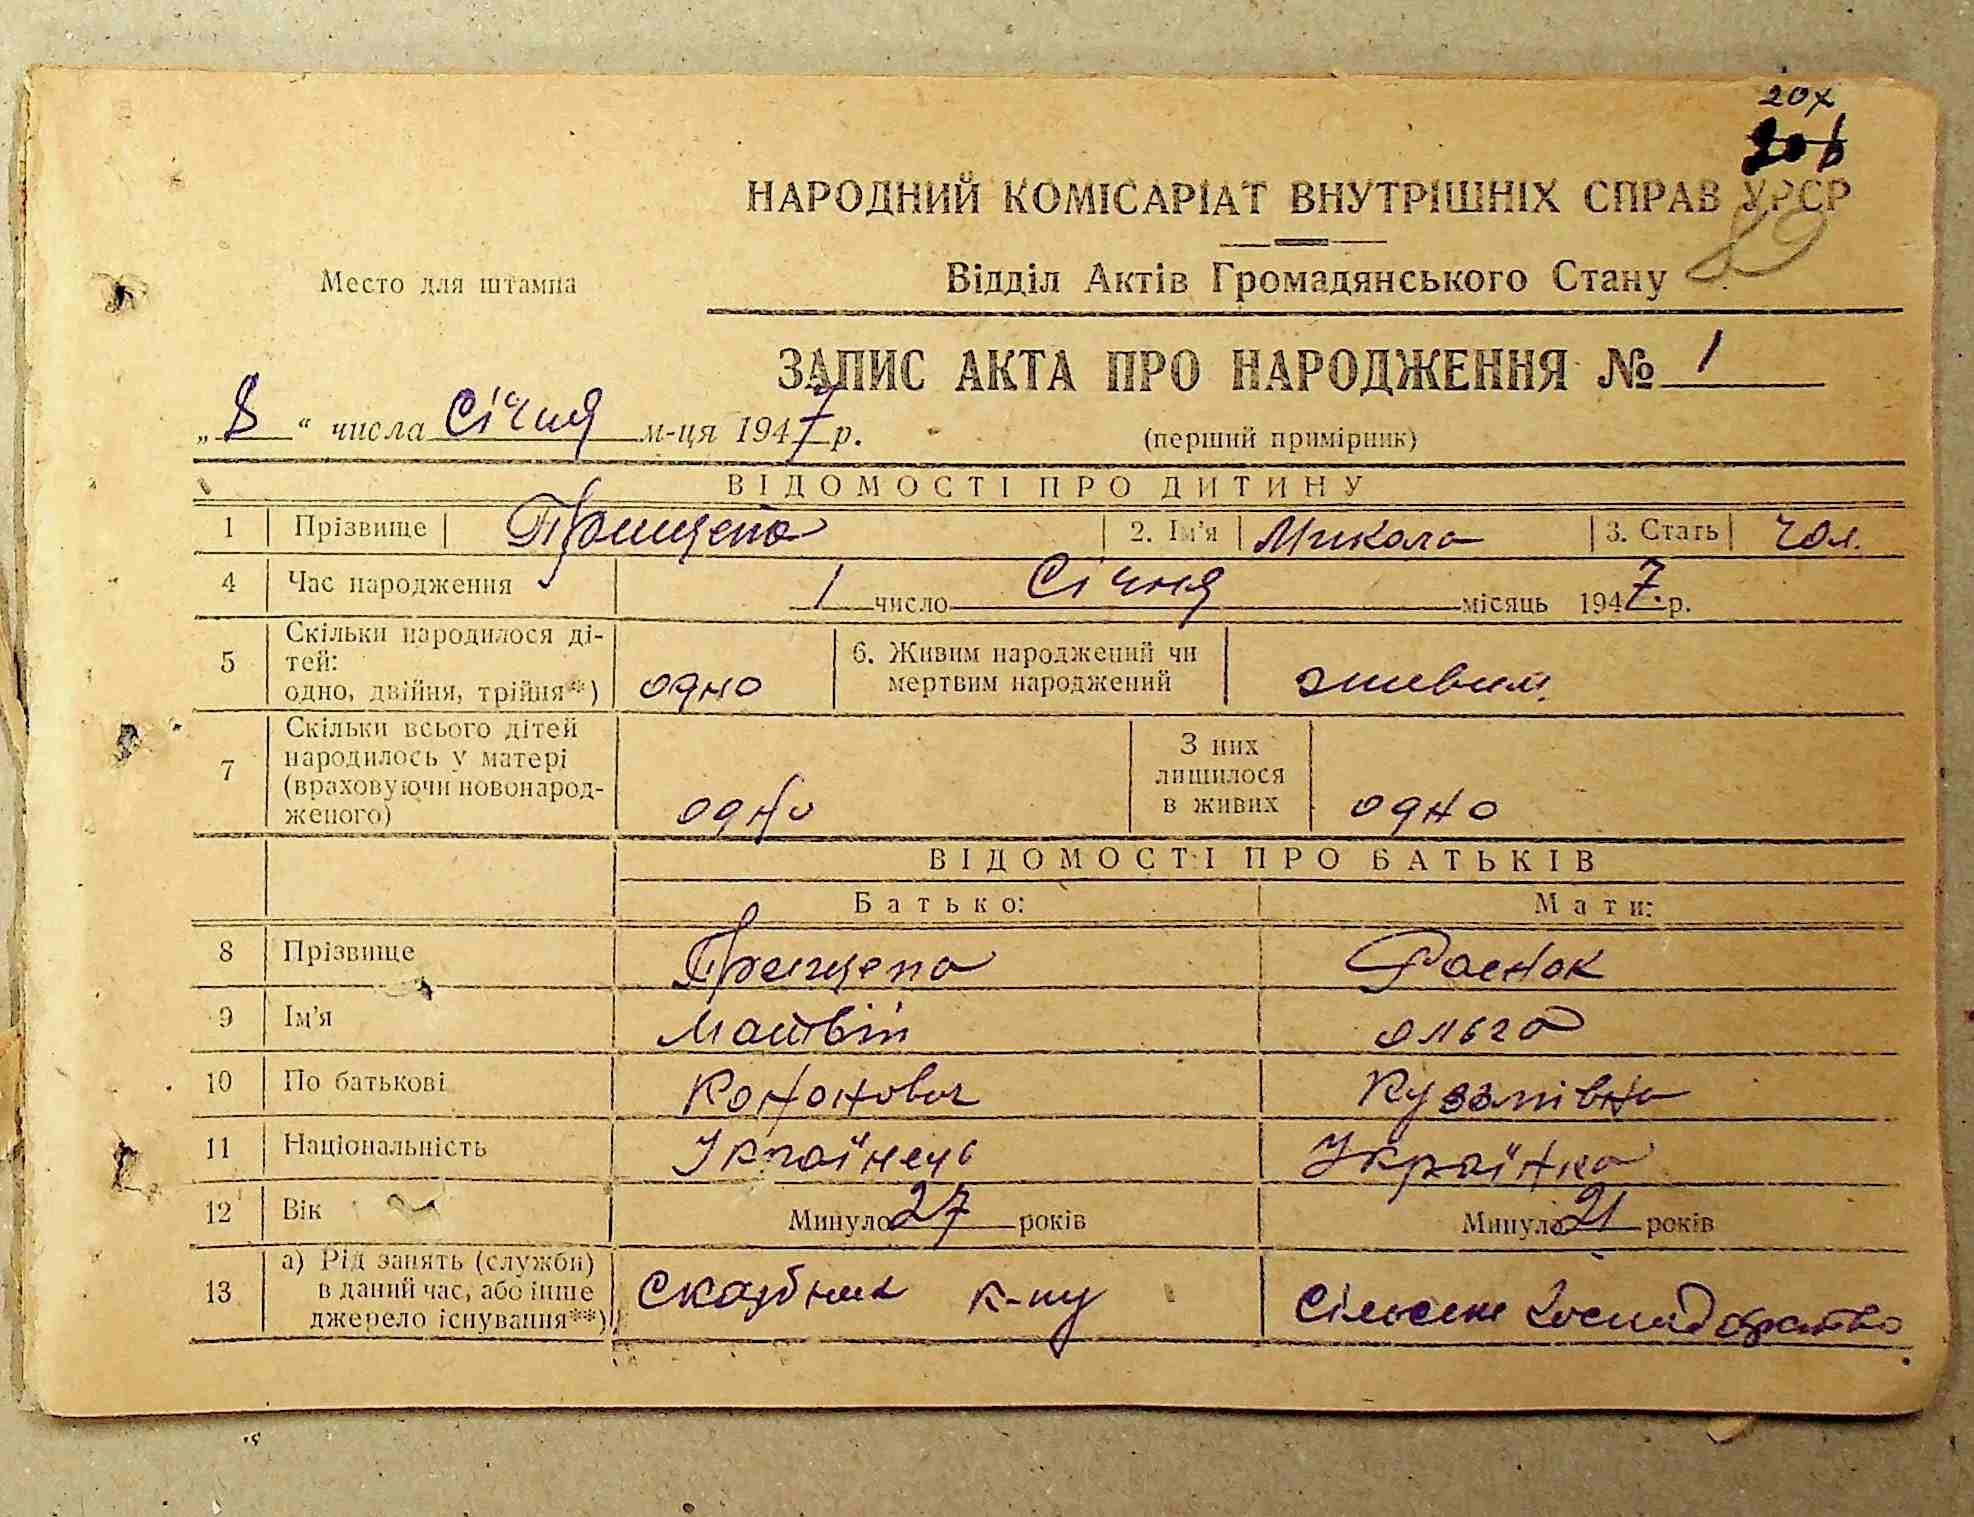 20х
206
НАРОДНИЙ КОМІСАРІАТ ВНУТРІШНІХ СПРАВ УРСР
89
Место для штампа
Відділ Актів Громадянського Стану
ЗАПИС АКТА ПРО НАРОДЖЕННЯ № 1
„8“ числа Січня м-ця 1947 р.
(перший примірник)
ВІДОМОСТІ ПРО ДИТИНУ
1 Прізвище Прищепа 2. Ім'я Микола 3. Стать чол.
4 Час народження 1 число Січня місяць 1947 р.
5 Скільки народилося ді-
тей:
одно, двійня, трійня*) одно
6. Живим народжений чи
мертвим народжений живим
7 Скільки всього дітей
народилось у матері
(враховуючи новонарод-
женого) одно
З них
лишилося
в живих одно
ВІДОМОСТІ ПРО БАТЬКІВ
Батько: Мати:
8 Прізвище Прищепа
9 Ім'я Матвій Ольга
10 По батькові Кононович Кузьмівна
11 Національність Українець Українка
12 Вік Минуло 27 років Минуло 21 років
13 а) Рід занять (служби)
в даний час, або інше
джерело існування**)
Скарбник к-пу Сільське господарство